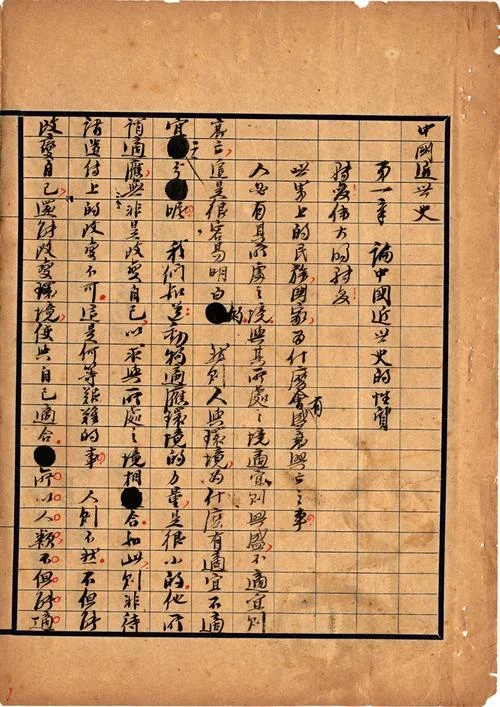 中國近世史
第一章 論中國近世史的性質
轉變!偉大的轉變!
世界上的民族,國家,為什麼會有盛衰興亡之事?
人必有其所處之境,與其所處之境適宜則興盛,不適宜則
衰亡,這是很容易明白的。 然則人與環境,為什麼有適宜不適
宜之分呢? 我們知道:動物適應環境的力量,是很小的。他所
謂適應,無非是改變自己,以求與所處之境相合。如此,則非待
諸遺傳上的改變不可。這是何等艱難的事? 人則不然。不但能
改變自己,還能改變環境,使與自己適合。所以人類不但能適